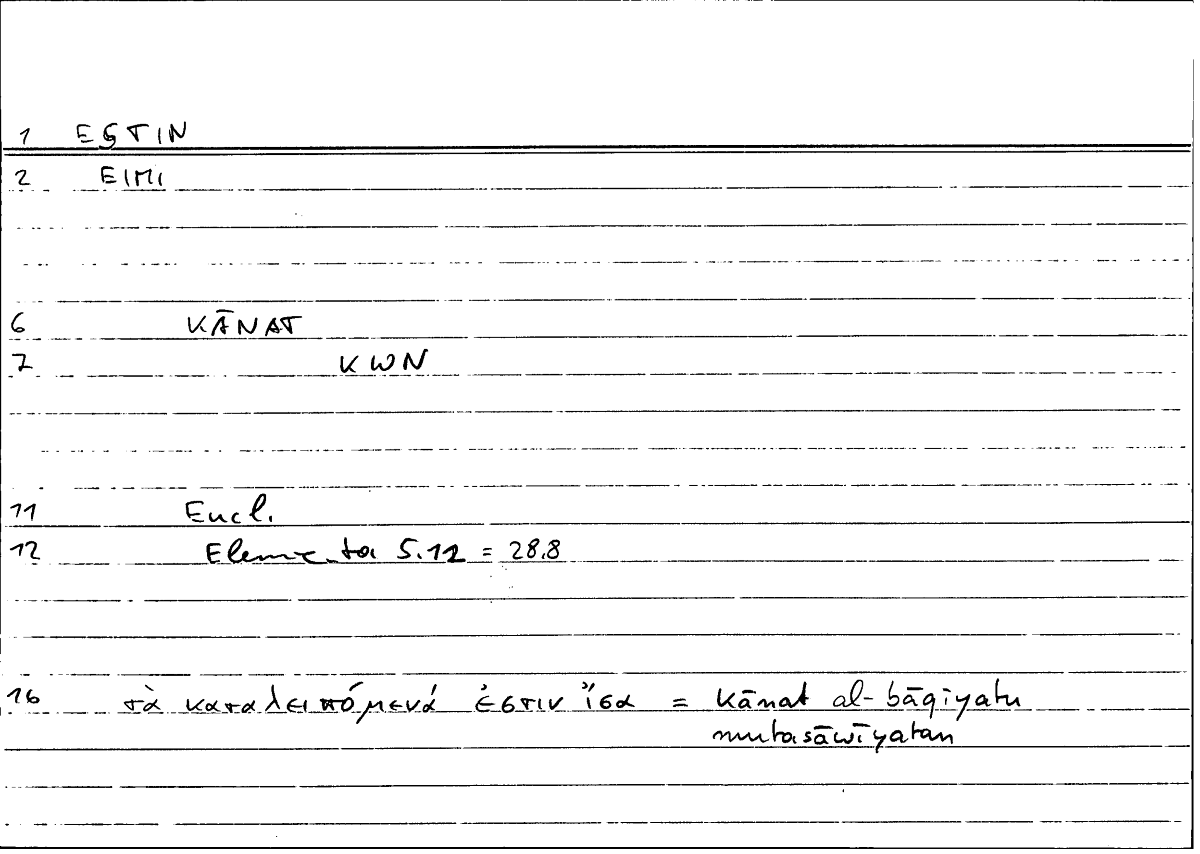 1 ESTIN
2 EIMI
6 KĀNAT
7 KWN
11 Eucl.
12 Elementa 5.12 = 28.8
16 τὰ καταλειπόμενά ἐστιν ἴσα = kānat al-bāqiyatu
mutasāwīyatan